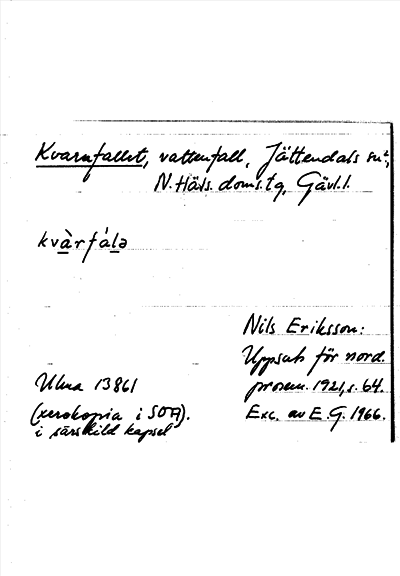 Kvarnfallet, vattenfall, Jättendals sn,
N. Häls. doms.tg, Gävl.l.
kvàrfálə
Nils Eriksson:
Uppsats för nord.
prosem. 1921, s. 64.
Exc. av E.G. 1966.
Ulma 13861
(xerokopia i SOA).
i särskild kapsel